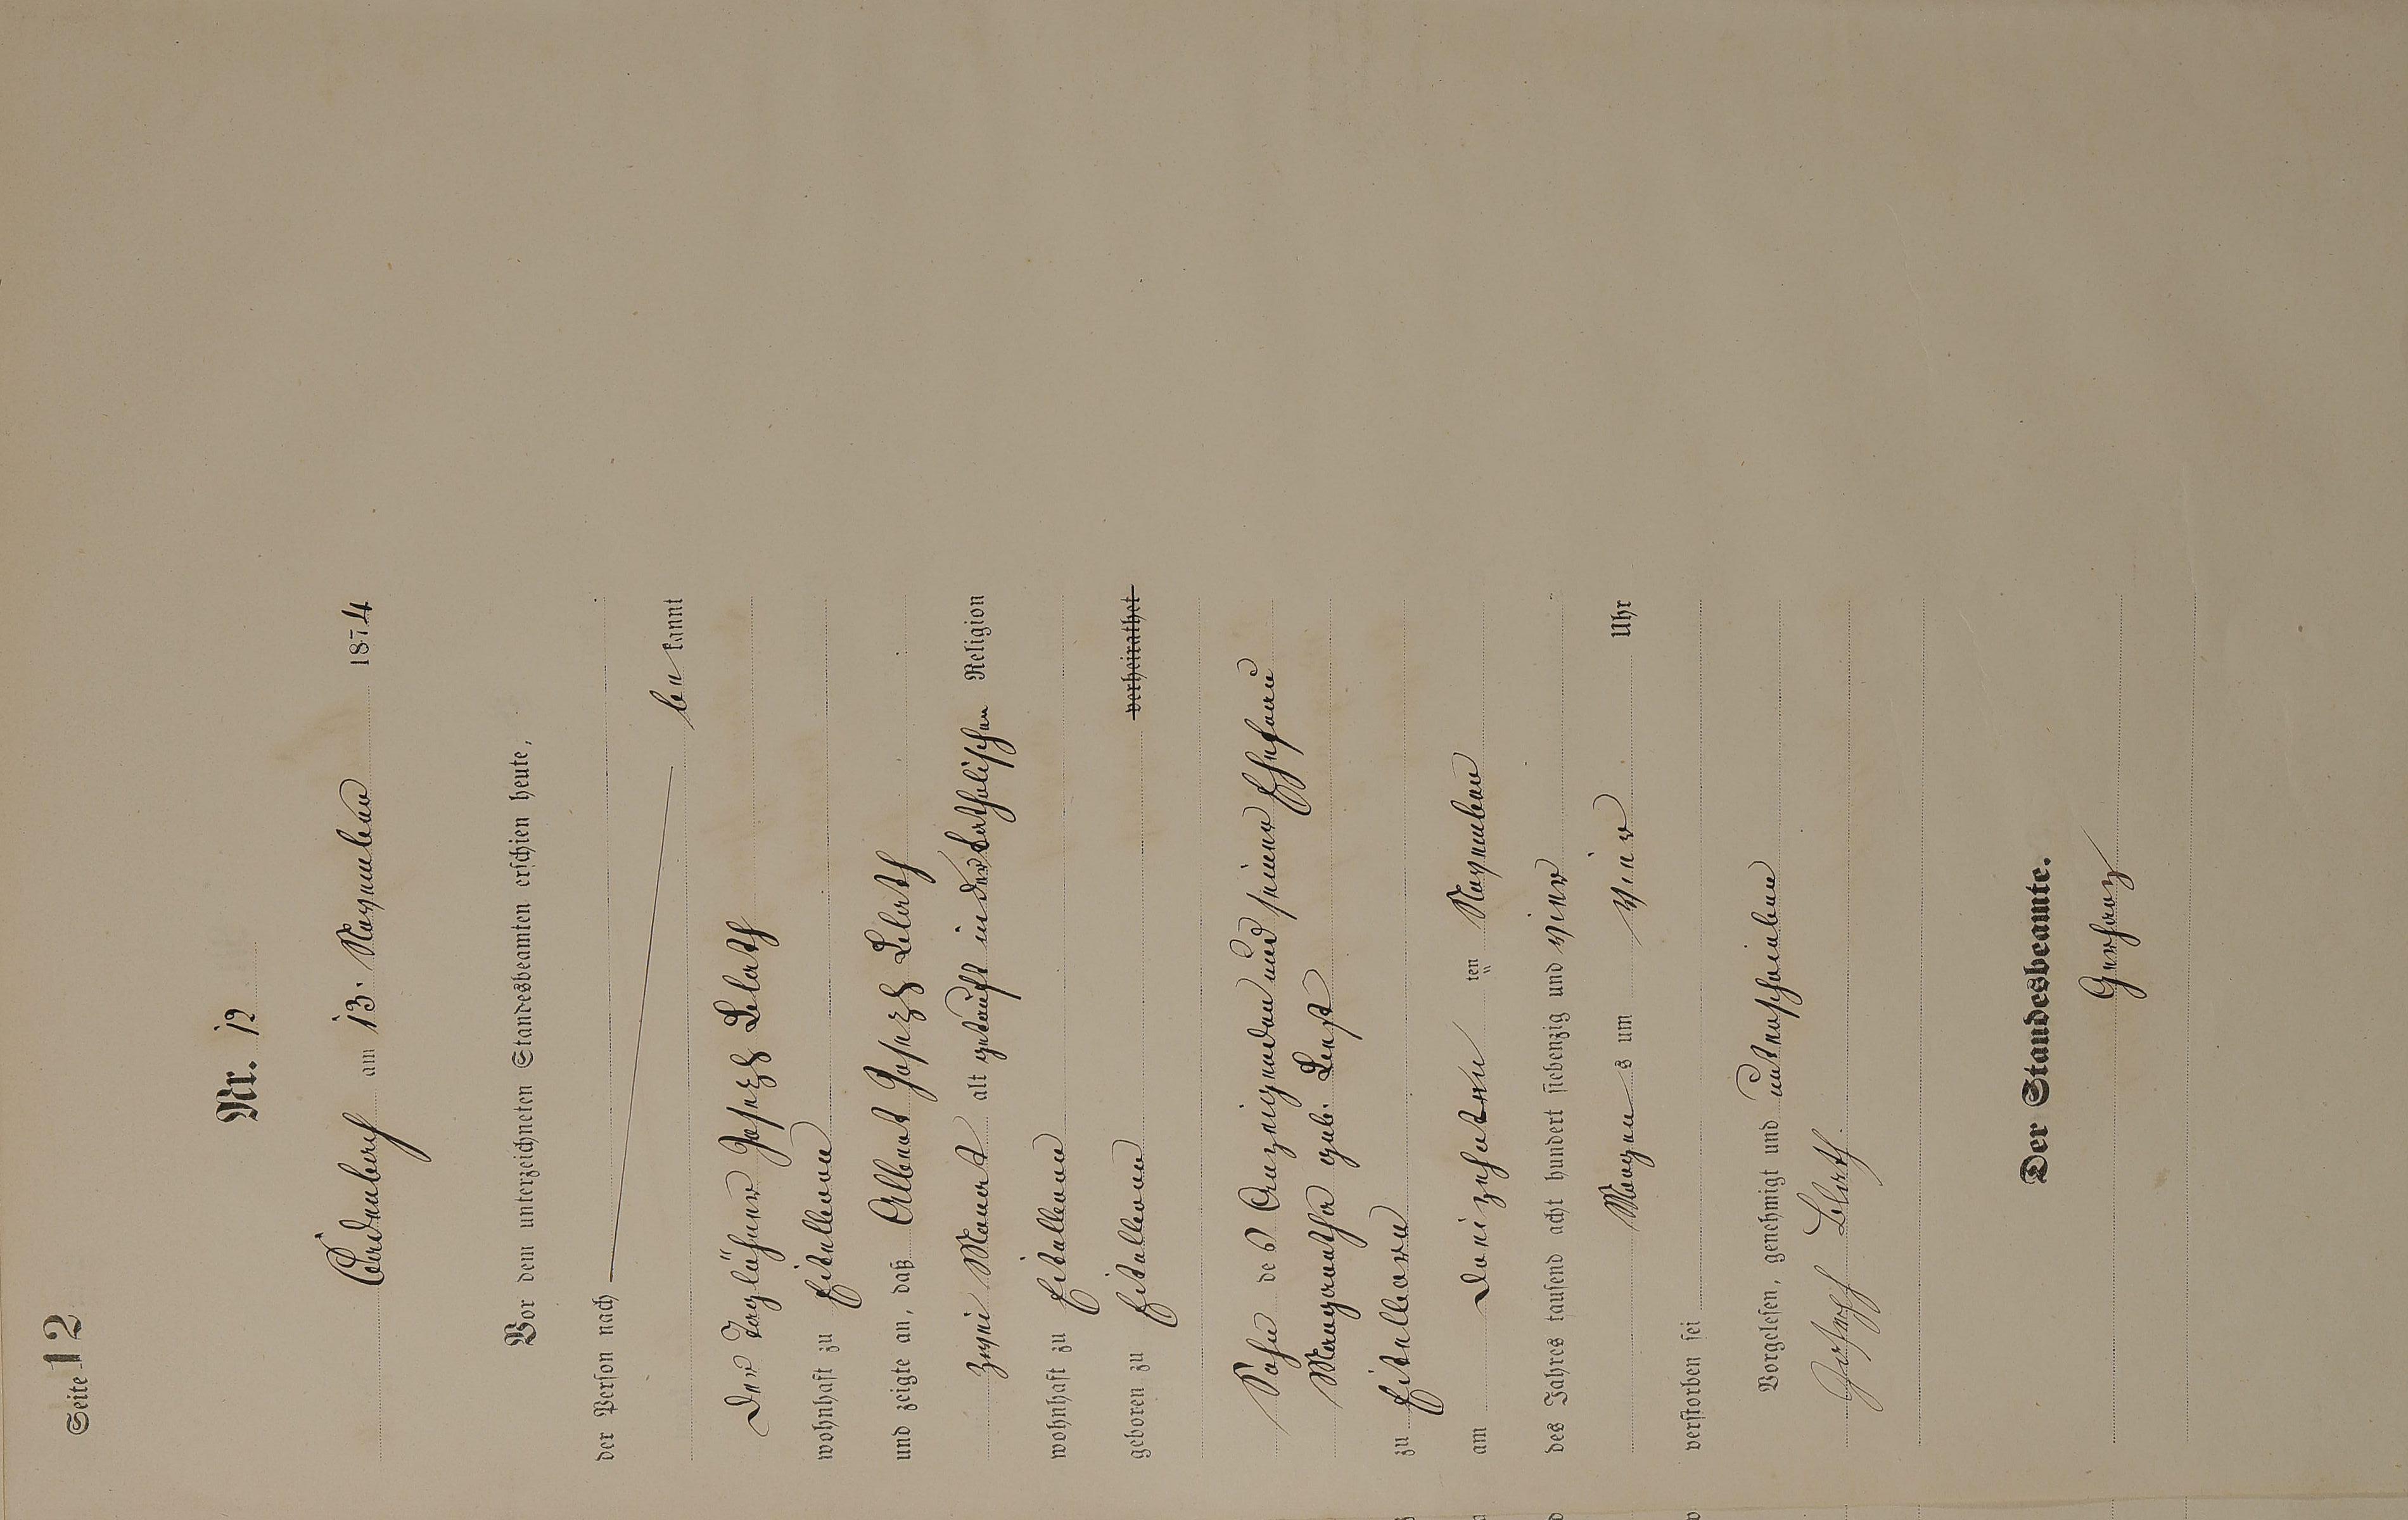 Seite 12
Nr. 12
am 13. November 1874
Vor dem unterzeichneten Standesbeamten erschien heute,
der Person nach
be kannt
Der Taglöhner Joseph Zelath
wohnhaft zu Eitelborn
und zeigte an, daß Albert Joseph Zelath
zwei Monat alt getauft in der katholischen Religion
wohnhaft zu Eitelborn
geboren zu Eitelborn verheirathet
Sohn des Anzeigenden und seiner Ehefrau
Margaretha geb.
zu Eitelborn
am dreizehnten ten November
des Jahres tausend acht hundert siebenzig und vier
Morgens um vier Uhr
verstorben sei
Vorgelesen, genehmigt und unterschrieben
Joseph Zelath
Der Standesbeamte.
Gerharz